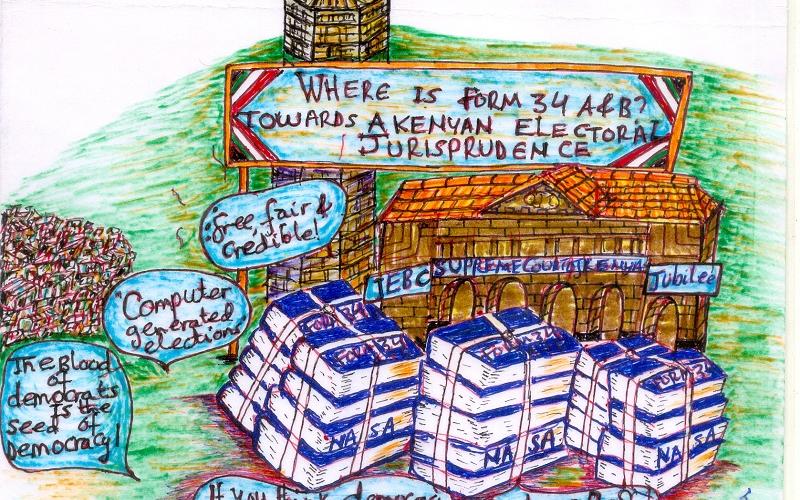 WHERE IS FORM 34 A&B?
TOWARDS A KENYAN ELECTORAL
JURISPRUDENCE
"Free, fair &
credible!
"Computer
generated
elections
The Blood
of
democrats
Is the
seed of
Democracy!
IEBC
SUPREME COURT OF KENYA
Jubilee
FORM 34
FORM 34
FORM 34
FORM 34
NA SA
NA SA
NA SA
If you think democracy